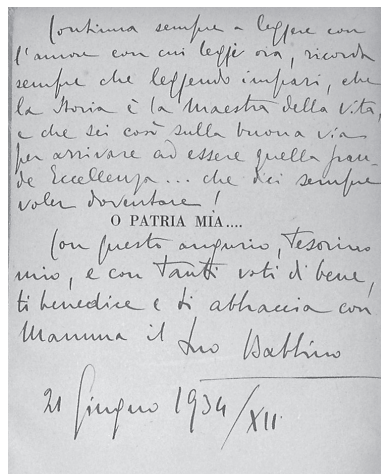 Continua sempre a leggere con
l'amore con cui leggi ora, ricorda
sempre che leggendo impari, che
la Storia è la Maestra della Vita,
e che sei così sulla buona via
per arrivare ad essere quella gran-
de Eccellenza... che dici sempre
voler doventare!
O PATRIA MIA....
Con questo augurio, Tesorino
mio, e con Tanti voti di bene,
ti benedice e ti abbraccia con
Mamma il tuo Babbino
21 Giugno 1934/XII.